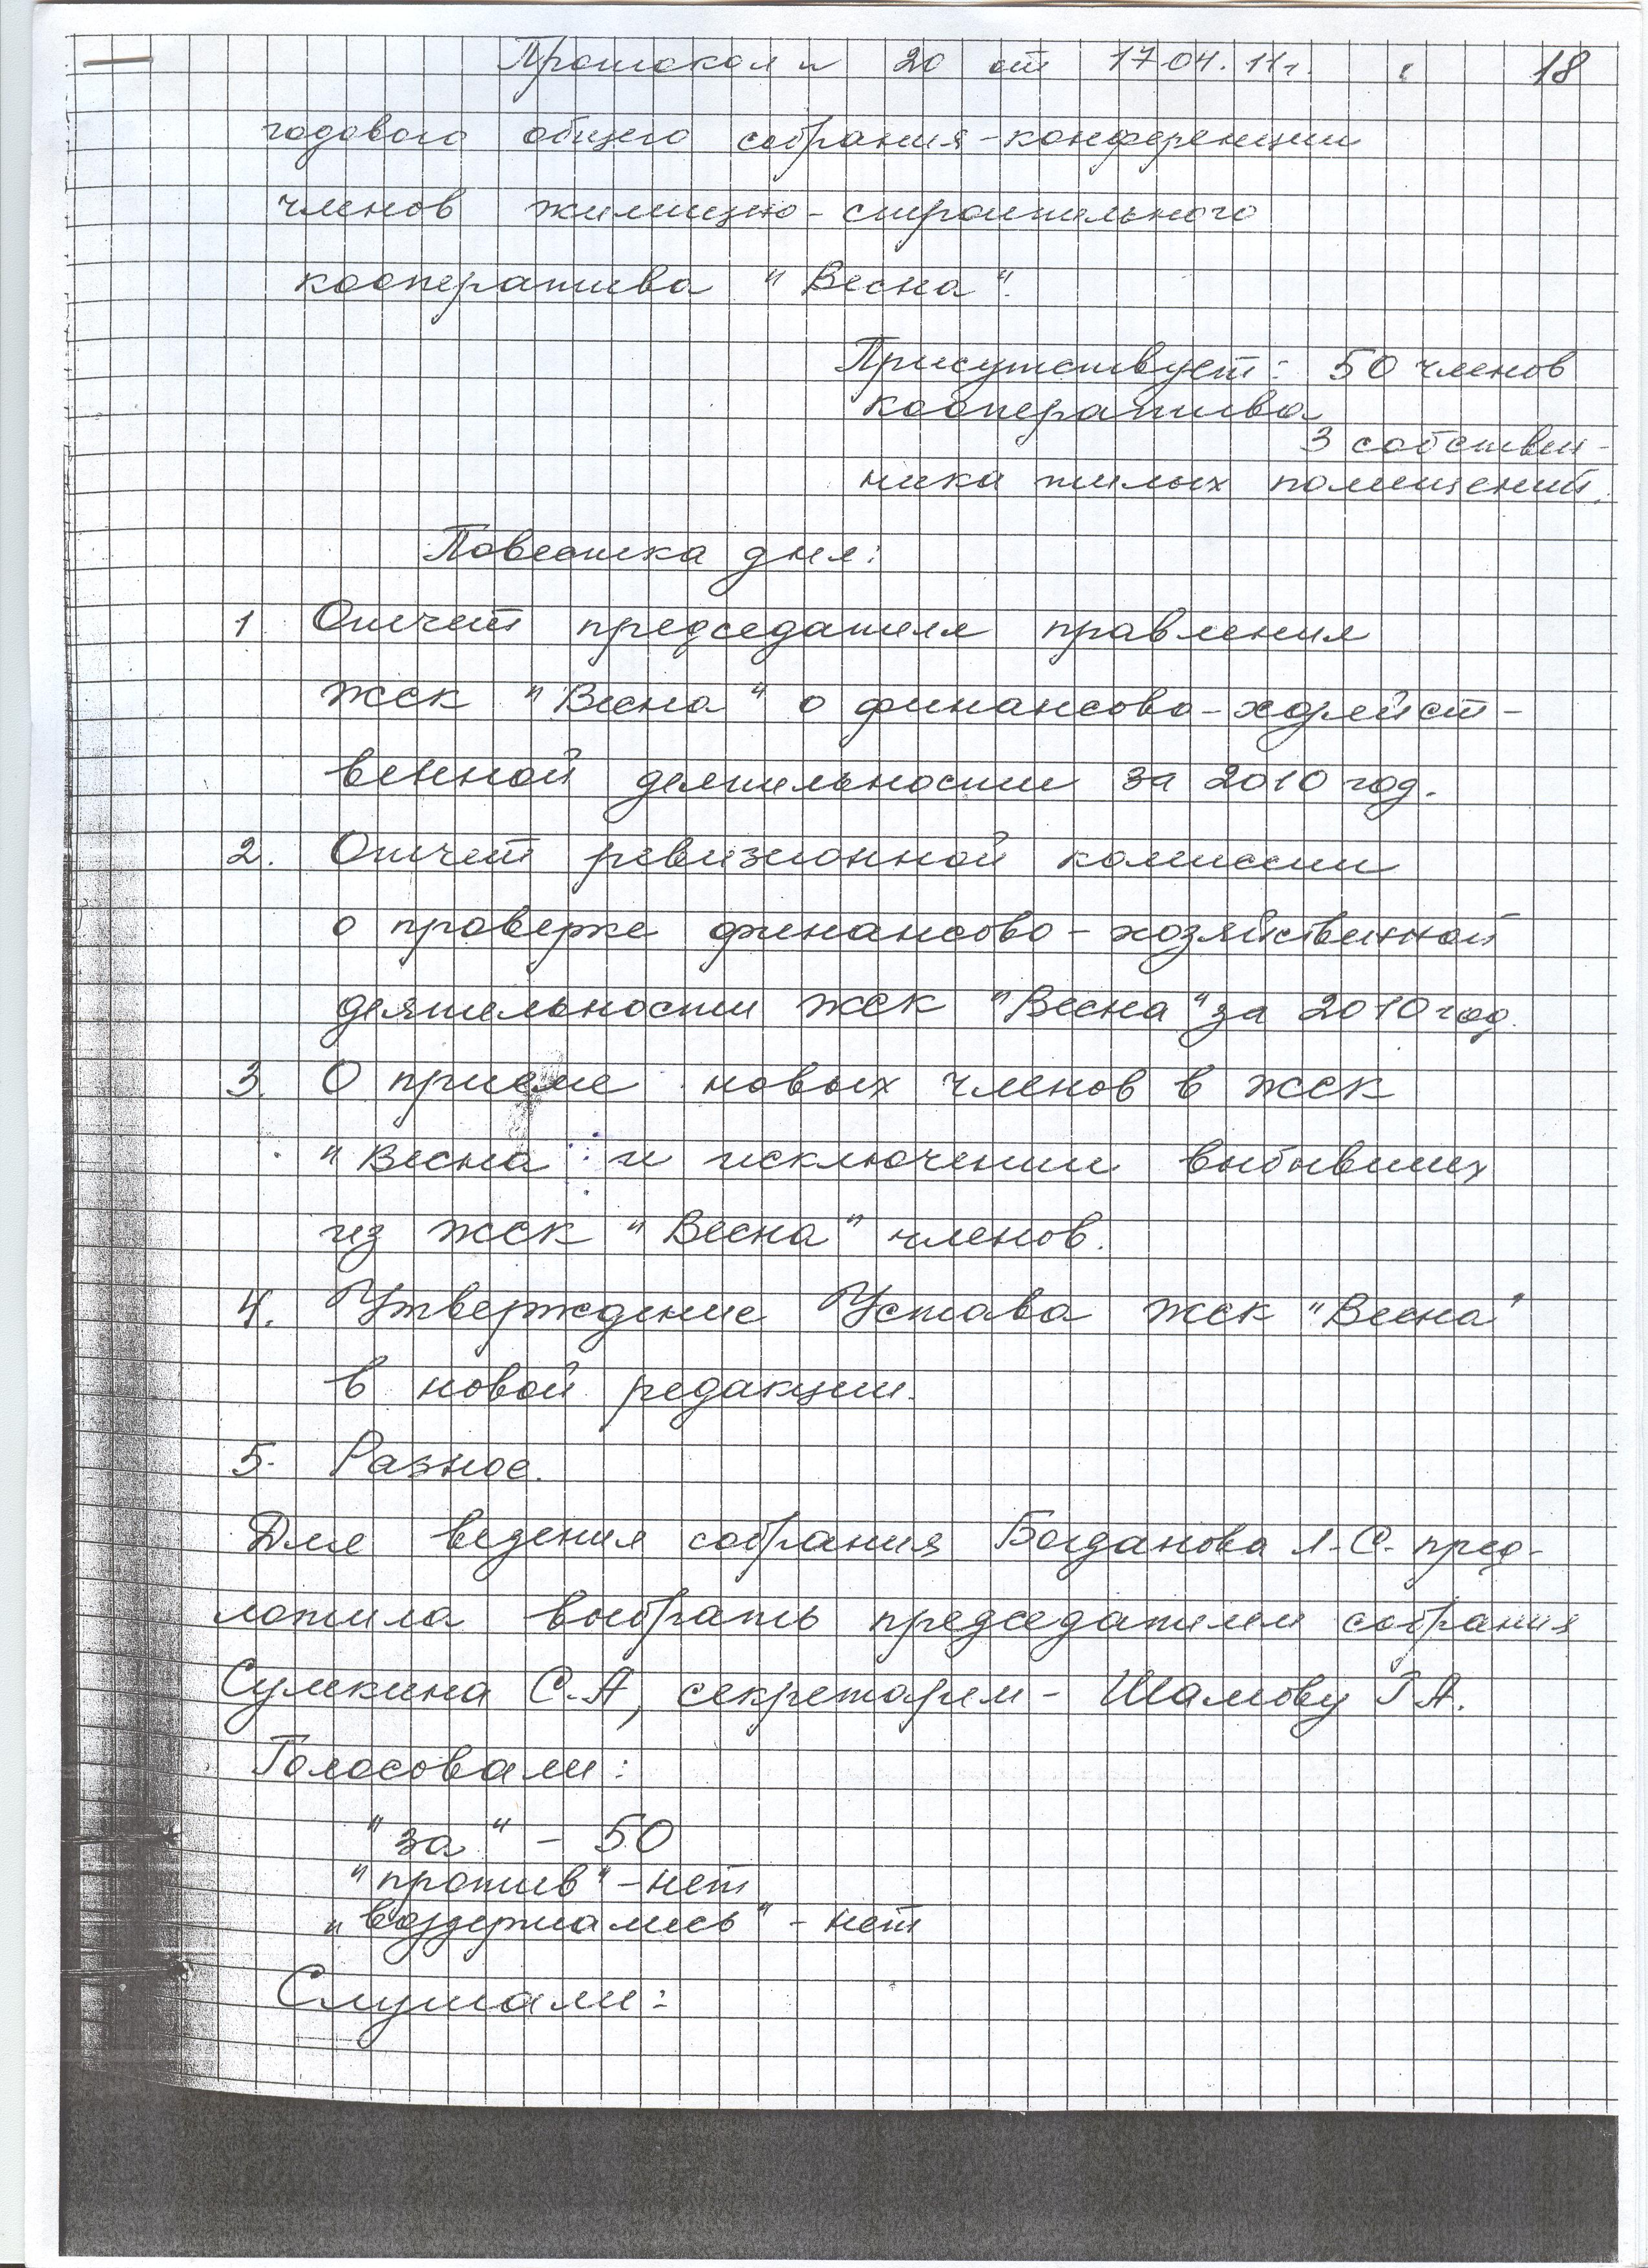 Протокол N 20 от 17.04.11г. 18
годового общего собрания-конференции
членов жилищно-строительного
кооператива "Весна".
Присутствует: 50 членов
кооператива
3 собствен-
ника жилых помещений.
Повестка дня:
1 Отчет председателя правления
ЖСК "Весна" о финансово-хозяйст-
венной деятельности за 2010 год.
2. Отчет ревизионной комиссии
о проверке финансово-хозяйственной
деятельности ЖСК "Весна" за 2010 год.
3. О приеме новых членов в ЖСК
"Весна" и исключении выбывших
из ЖСК "Весна" членов.
4. Утверждение Устава ЖСК "Весна"
в новой редакции.
5. Разное.
Для ведения собрания Богданова Л.С. пред-
ложила выбрать председателем собрания
Сумкина С.А, секретарем - Шамову Г А.
Голосовали:
"за" - 50
"против" - нет
"воздержались" - нет
Слушали: